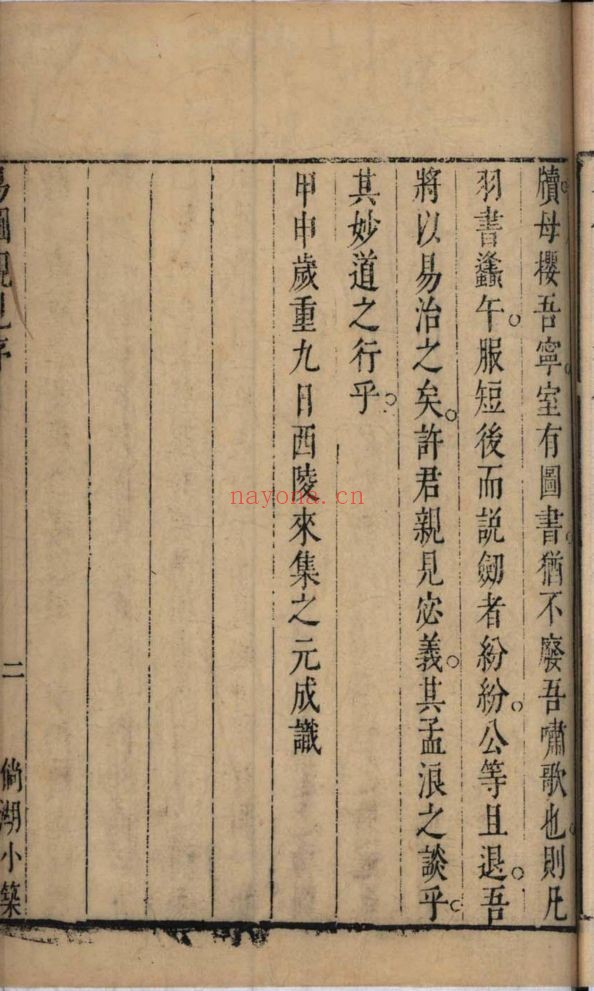 牘母攖吾寧室有圖書猶不廢吾嘯歌也則凡
羽書蠭午服短後而説劒者紛紛公等且退吾
將以易治之矣許君親見宓義其孟浪之談乎
其妙道之行乎
甲申歲重九日西陵來集之元成識
易圖親見序
二
倘湖小築
nayona.cn